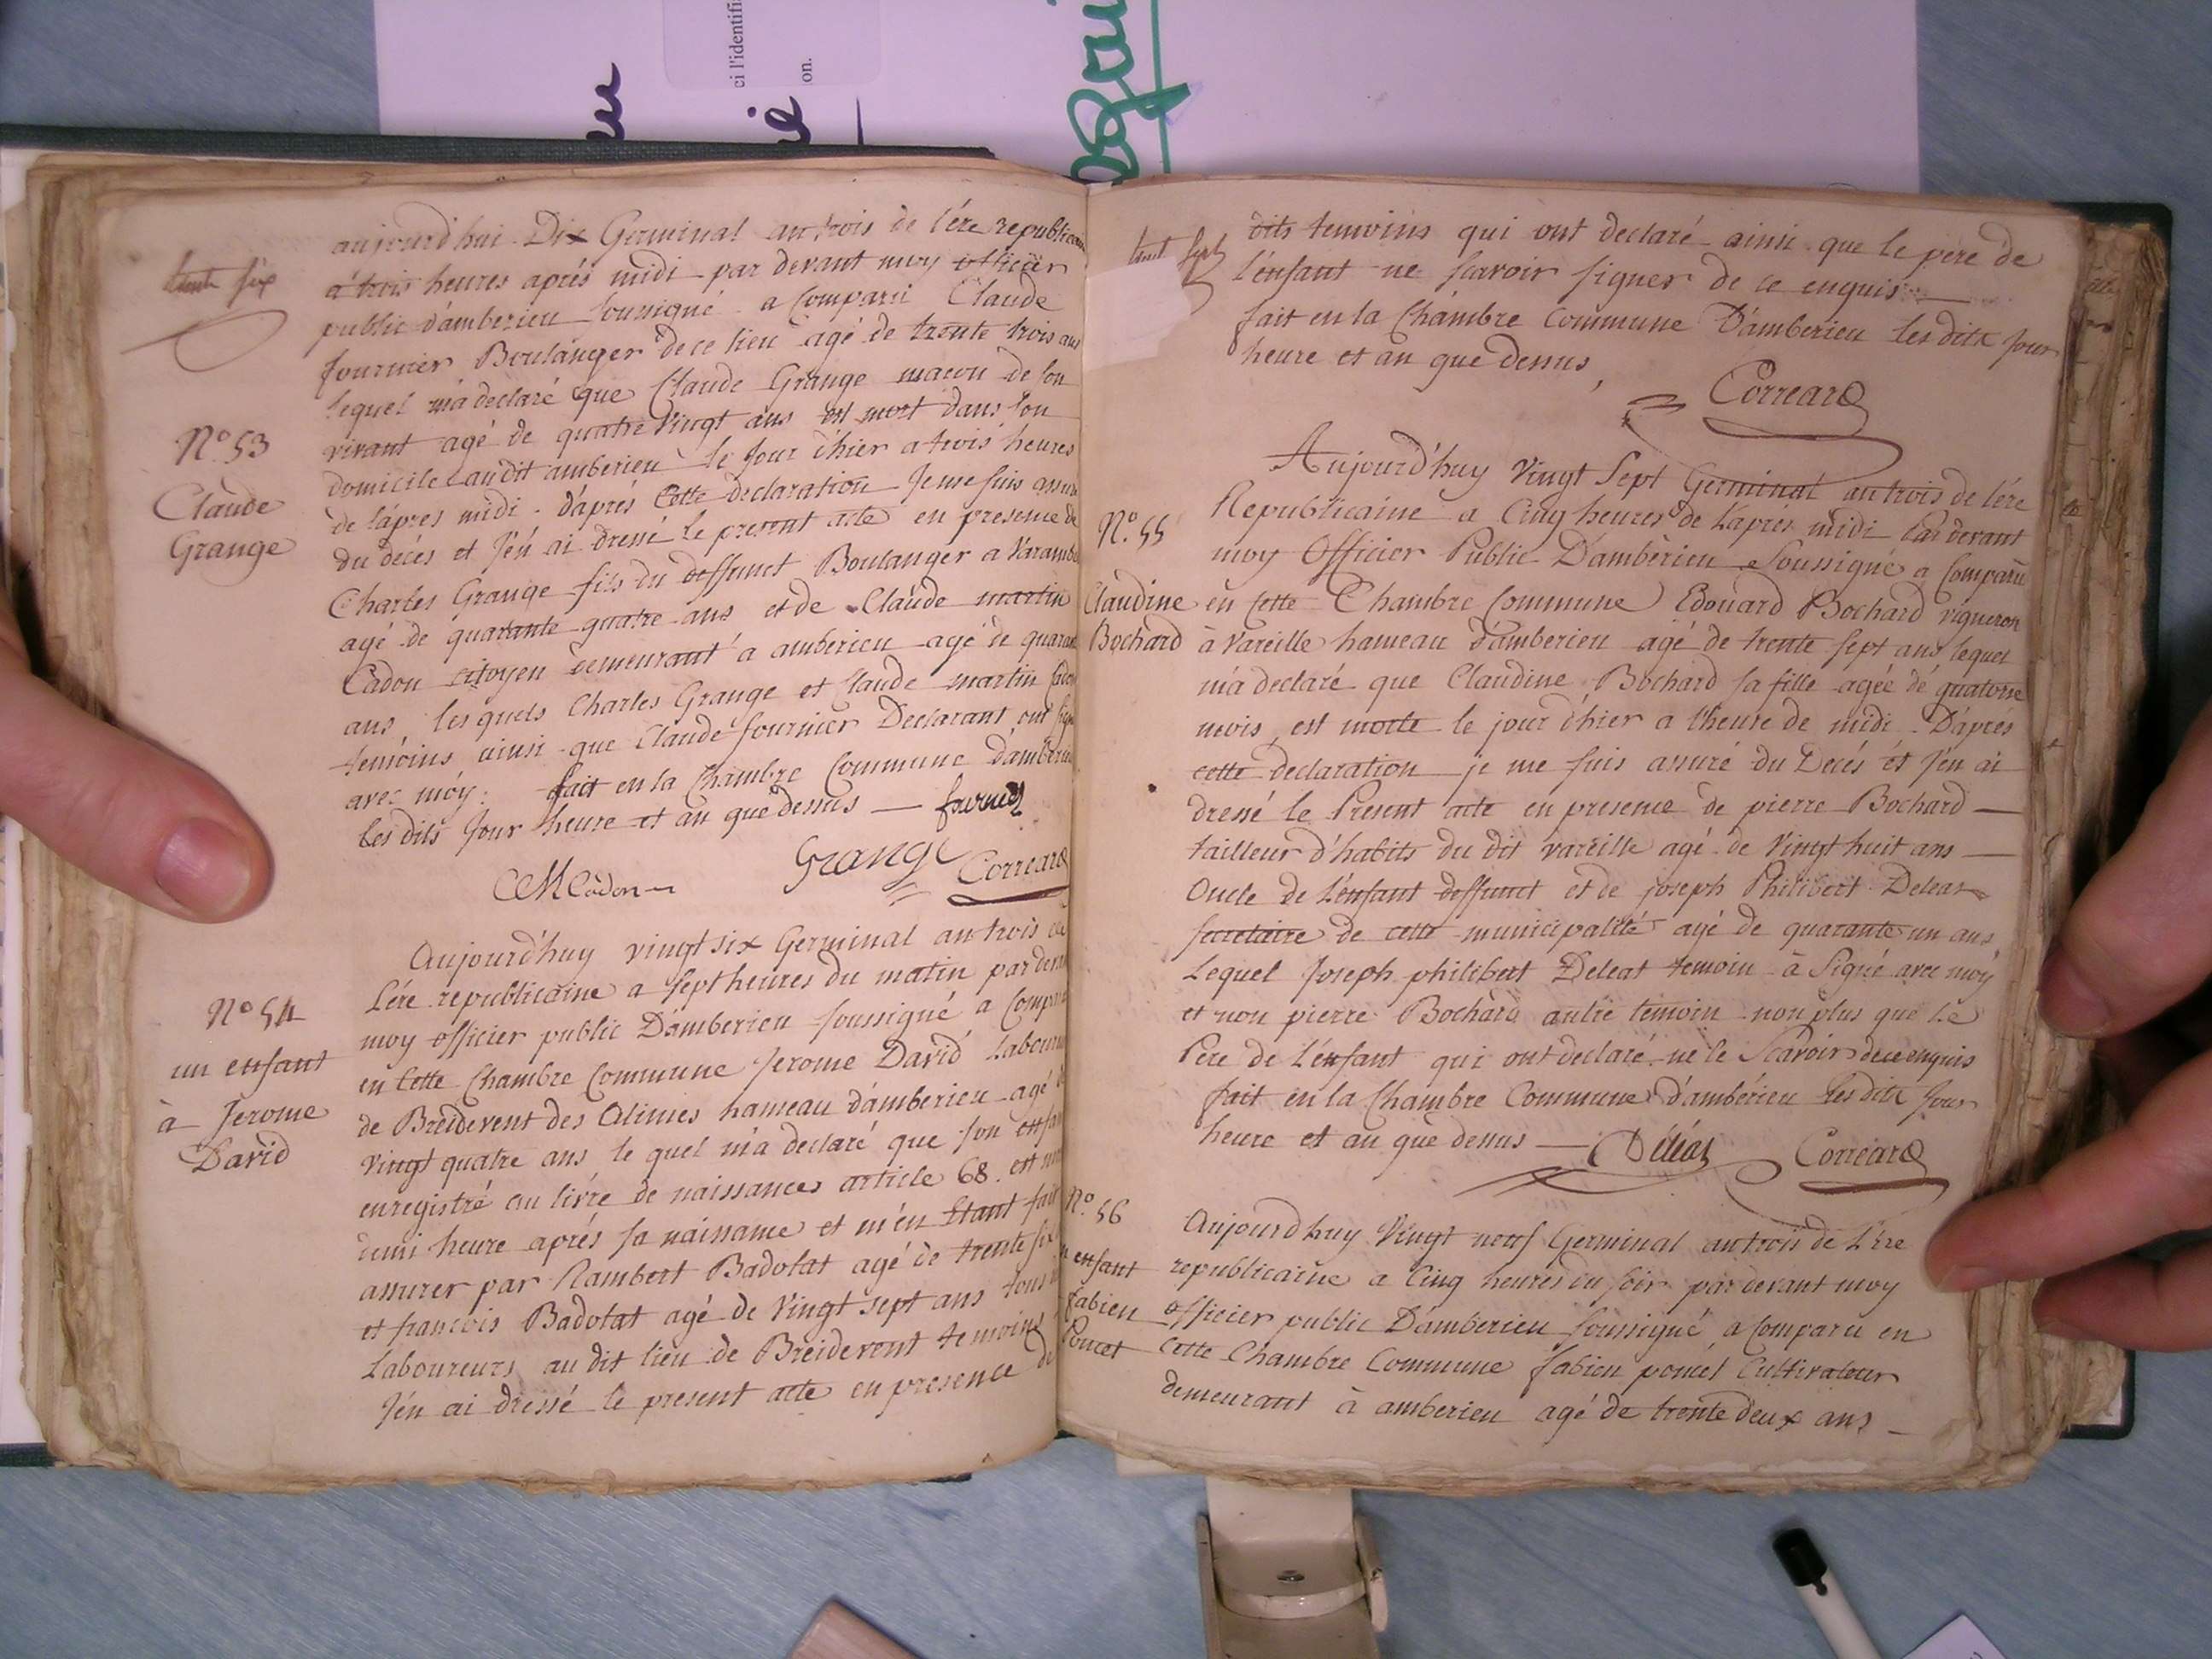 ci l'identifi
on.
trente six
aujourdhui Dix Germinal an trois de l'ére republicai
a trois heures aprés midi par devant moy officier
public d'amberieu soussigné a comparu Claude
fournier Boulanger de ce lieu agé de trente trois ans
lequel m'a declaré que Claude Grange macon de son
vivant agé de quatre vingt ans est mort dans son
domicile audit amberieu le jour d'hier a trois heures
de l'apres midi. d'aprés Cette declaration Je me suis assuré
du decés et J'en ai dressé le present acte en presence de
Charles Grange fils du deffunct Boulanger a Varambo
agé de quarante quatre ans et de Claude martin
Cadou citoyen demeurant a amberieu agé de quarante
ans, lesquels Charles Grange et Claude martin Cadou
temoins ainsi que Claude fournier Declarant ont signé
avec moy. fait en la Chambre Commune d'amberieu
les dits Jour heure et an que dessus — fournier
CM Cadou Grange Correard
N° 53
Claude
Grange
Aujourd'huy vingt six Germinal an trois de
L'ére republicaine a sept heures du matin par devant
moy officier public D'amberieu soussigné a Comparu
en Cette Chambre Commune Jerome David Laboureur
de Breidevent des Alimes hameau d'amberieu agé de
vingt quatre ans le quel m'a declaré que son enfant
enregistré au livre de naissances article 68. est mort
demi heure aprés sa naissance et m'en Etant fait
assurer par Rambert Badolat agé de trente six
et francois Badolat agé de Vingt sept ans tous
Laboureurs au dit lieu de Breidevent temoins
J'en ai dressé le present acte en presence de
N° 54
un enfant
à Jerome
David
trent sept
dits temoins qui ont declaré ainsi que le pere de
l'enfant ne scavoir signer de ce enquis —
fait en la Chambre Commune D'amberieu les dits Jour
heure et an que dessus,
Correard
Aujourd'huy Vingt Sept Germinal an trois de l'ére
Republicaine a Cinq heures de L'aprés midi Par devant
moy Officier Public D'ambérieu Soussigné a Comparu
en Cette Chambre Commune Edouard Bochard vigneron
à Vareille hameau d'amberieu agé de trente sept ans lequel
m'a declaré que Claudine Bochard sa fille agée de quatorse
mois, est morte le jour d'hier a l'heure de midi. D'aprés
cette declaration je me suis assuré du Decés et J'en ai
dressé le Present acte en presence de pierre Bochard —
tailleur d'habits du dit vareille agé de Vingt huit ans —
Oncle de L'enfant deffunct et de joseph Philibert Deleat
secretaire de cette municipalité agé de quarante un ans
Lequel Joseph philibert Deleat temoin à Signé avec moy
et non pierre Bochard autre temoin non plus que Le
Pere de L'enfant qui ont declaré ne le Scavoir de ce enquis
fait en la Chambre Commune d'ambérieu les dits Jour
heure et an que dessus — Déléat Correard
N°. 55
Claudine
Bochard
Aujourdhuy Vingt neuf Germinal an trois de L'ere
republicaine a Cinq heures du soir par devant moy
officier public D'amberieu soussigné a Comparu en
Cette Chambre Commune fabien poncet Cultivateur
demeurant à amberieu agé de trente deux ans —
N°. 56
enfant
fabien
Poncet